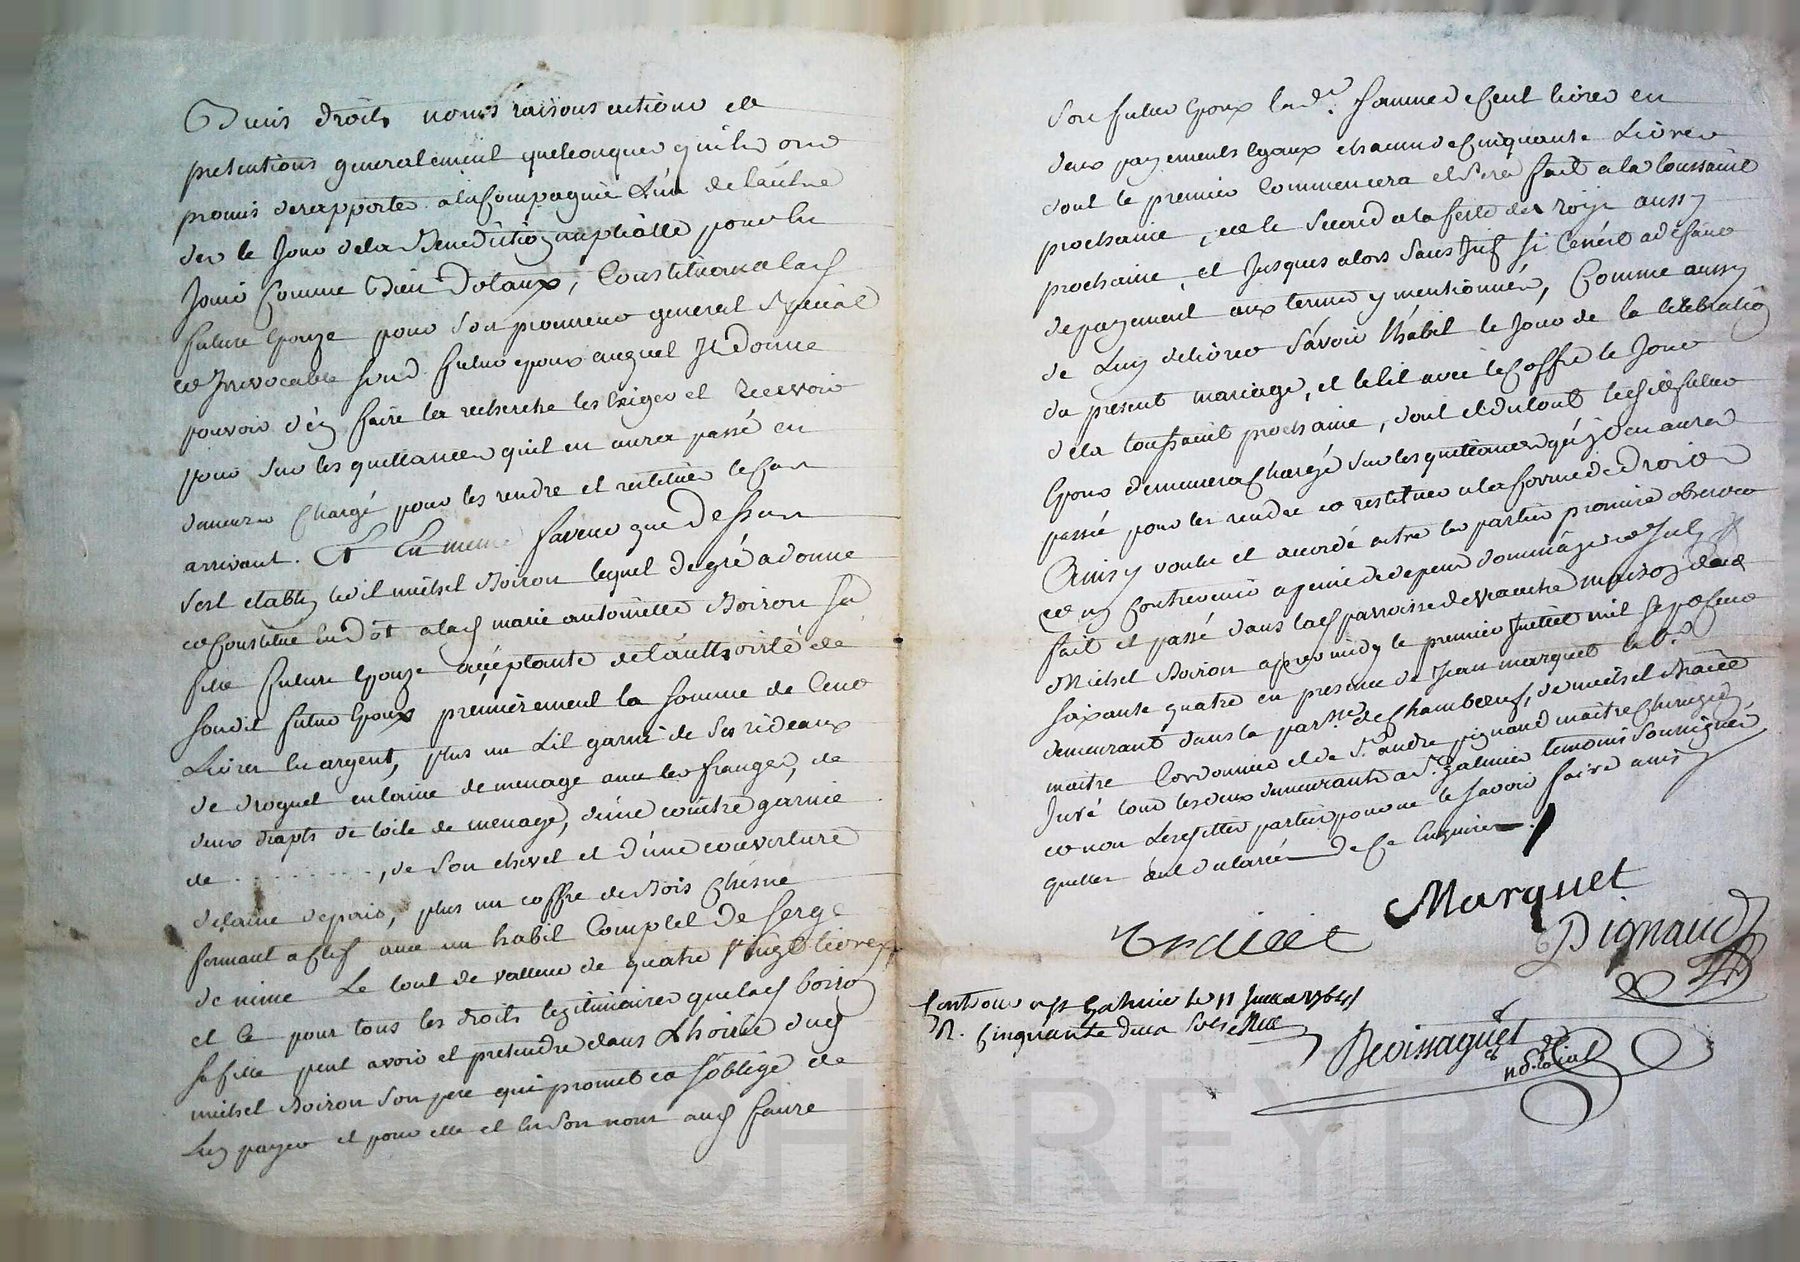 Biens droits noms raisons actions et
pretentions generalement quelconques quils ont
promis de rapporter a la Compagnie L'un de l'autre
des le Jour de la Benediction nuptialle pour les
Jouir Comme Bien Dotaux, Constituant lad
future Epouze pour son procureur general Special
et Irrevocable sond. futur epoux auquel Il donne
pouvoir d'en faire la recherche les Exiger et recevoir
pour sur les quittances qu'il en aura passé en
demeurer Chargé pour les rendre et restituer le Cas
arrivant. Et En meme faveur que Dessus
s'est etably led. michel Boiron lequel de gré a donné
et Constitué En Dôt a lad marie antoinette Boiron sa
fille future Epouze acçéptante de l'authorité de
sondit futur Epoux premièrement la somme de Cent
Livres En argent, plus un Lit garni de ses rideaux
de droguet en laine de menage avec les franges, de
deux drapts de toile de menage, d'une coitre garnie
de . . . . . . . . . . , de son chevet et d'une couverture
de laine de païs, plus un coffre de Bois Chesne
fermant a Clef avec un habit Complet de serge
de nime Le tout de valleur de quatre Vingt livres
et Ce pour tous les droits legitimaires que lad boiron
sa fille peut avoir et pretendre dans L'hoirie dud
michel Boiron son pere qui promet et s'oblige de
Luy payer et pour elle et En son nom aud futur
son futur Epoux la d.e somme de Cent livres en
deux payements Egaux chacun de Cinquante Livres
dont le premier Commencera et sera fait a la toussaint
prochaine, et le second a la feste des rois aussy
prochaine, et Jusques alors sans Int si Cen'est a défaut
de payement aux termes y mentionnés, Comme aussy
de Luy delivrer sávoir l'habit le Jour de la celebration
du present mariage, et le lit avec le Coffre le Jour
de la toussaint prochaine, dont et du tout led. futur
Epoux demeurera Chargé sur les quittances qu'il en aura
passé pour les rendre et restituer a la forme de Droit
Ainsy voulu et accordé entre les parties promis observer
et ny Contrevenir a peine de depens dommages et Int
fait et passé dans lad parroisse de veauche maison dud
Michel Boiron apres midy le premier Juillet mil sept Cent
soixante quatre en presence de Jean marquet lab.r
demeurant dans la par.sse de Chambœuf, de michel traillet
maitre Cordonnier et de S.r andré pignaud maître Chirurgien
Juré tous les deux demeurants a S.t galmier temoins soussignés
et non Lesdittes parties pour ne le savoir faire ainsy
quelles ont declaré de Ce Enquises.
Marquet
Traillet
Pignaud
Controllé a S.t Galmier le 11 Juillet 1764
R. Cinquante deux sols
Boissaguet
notaire
CHAREYRON